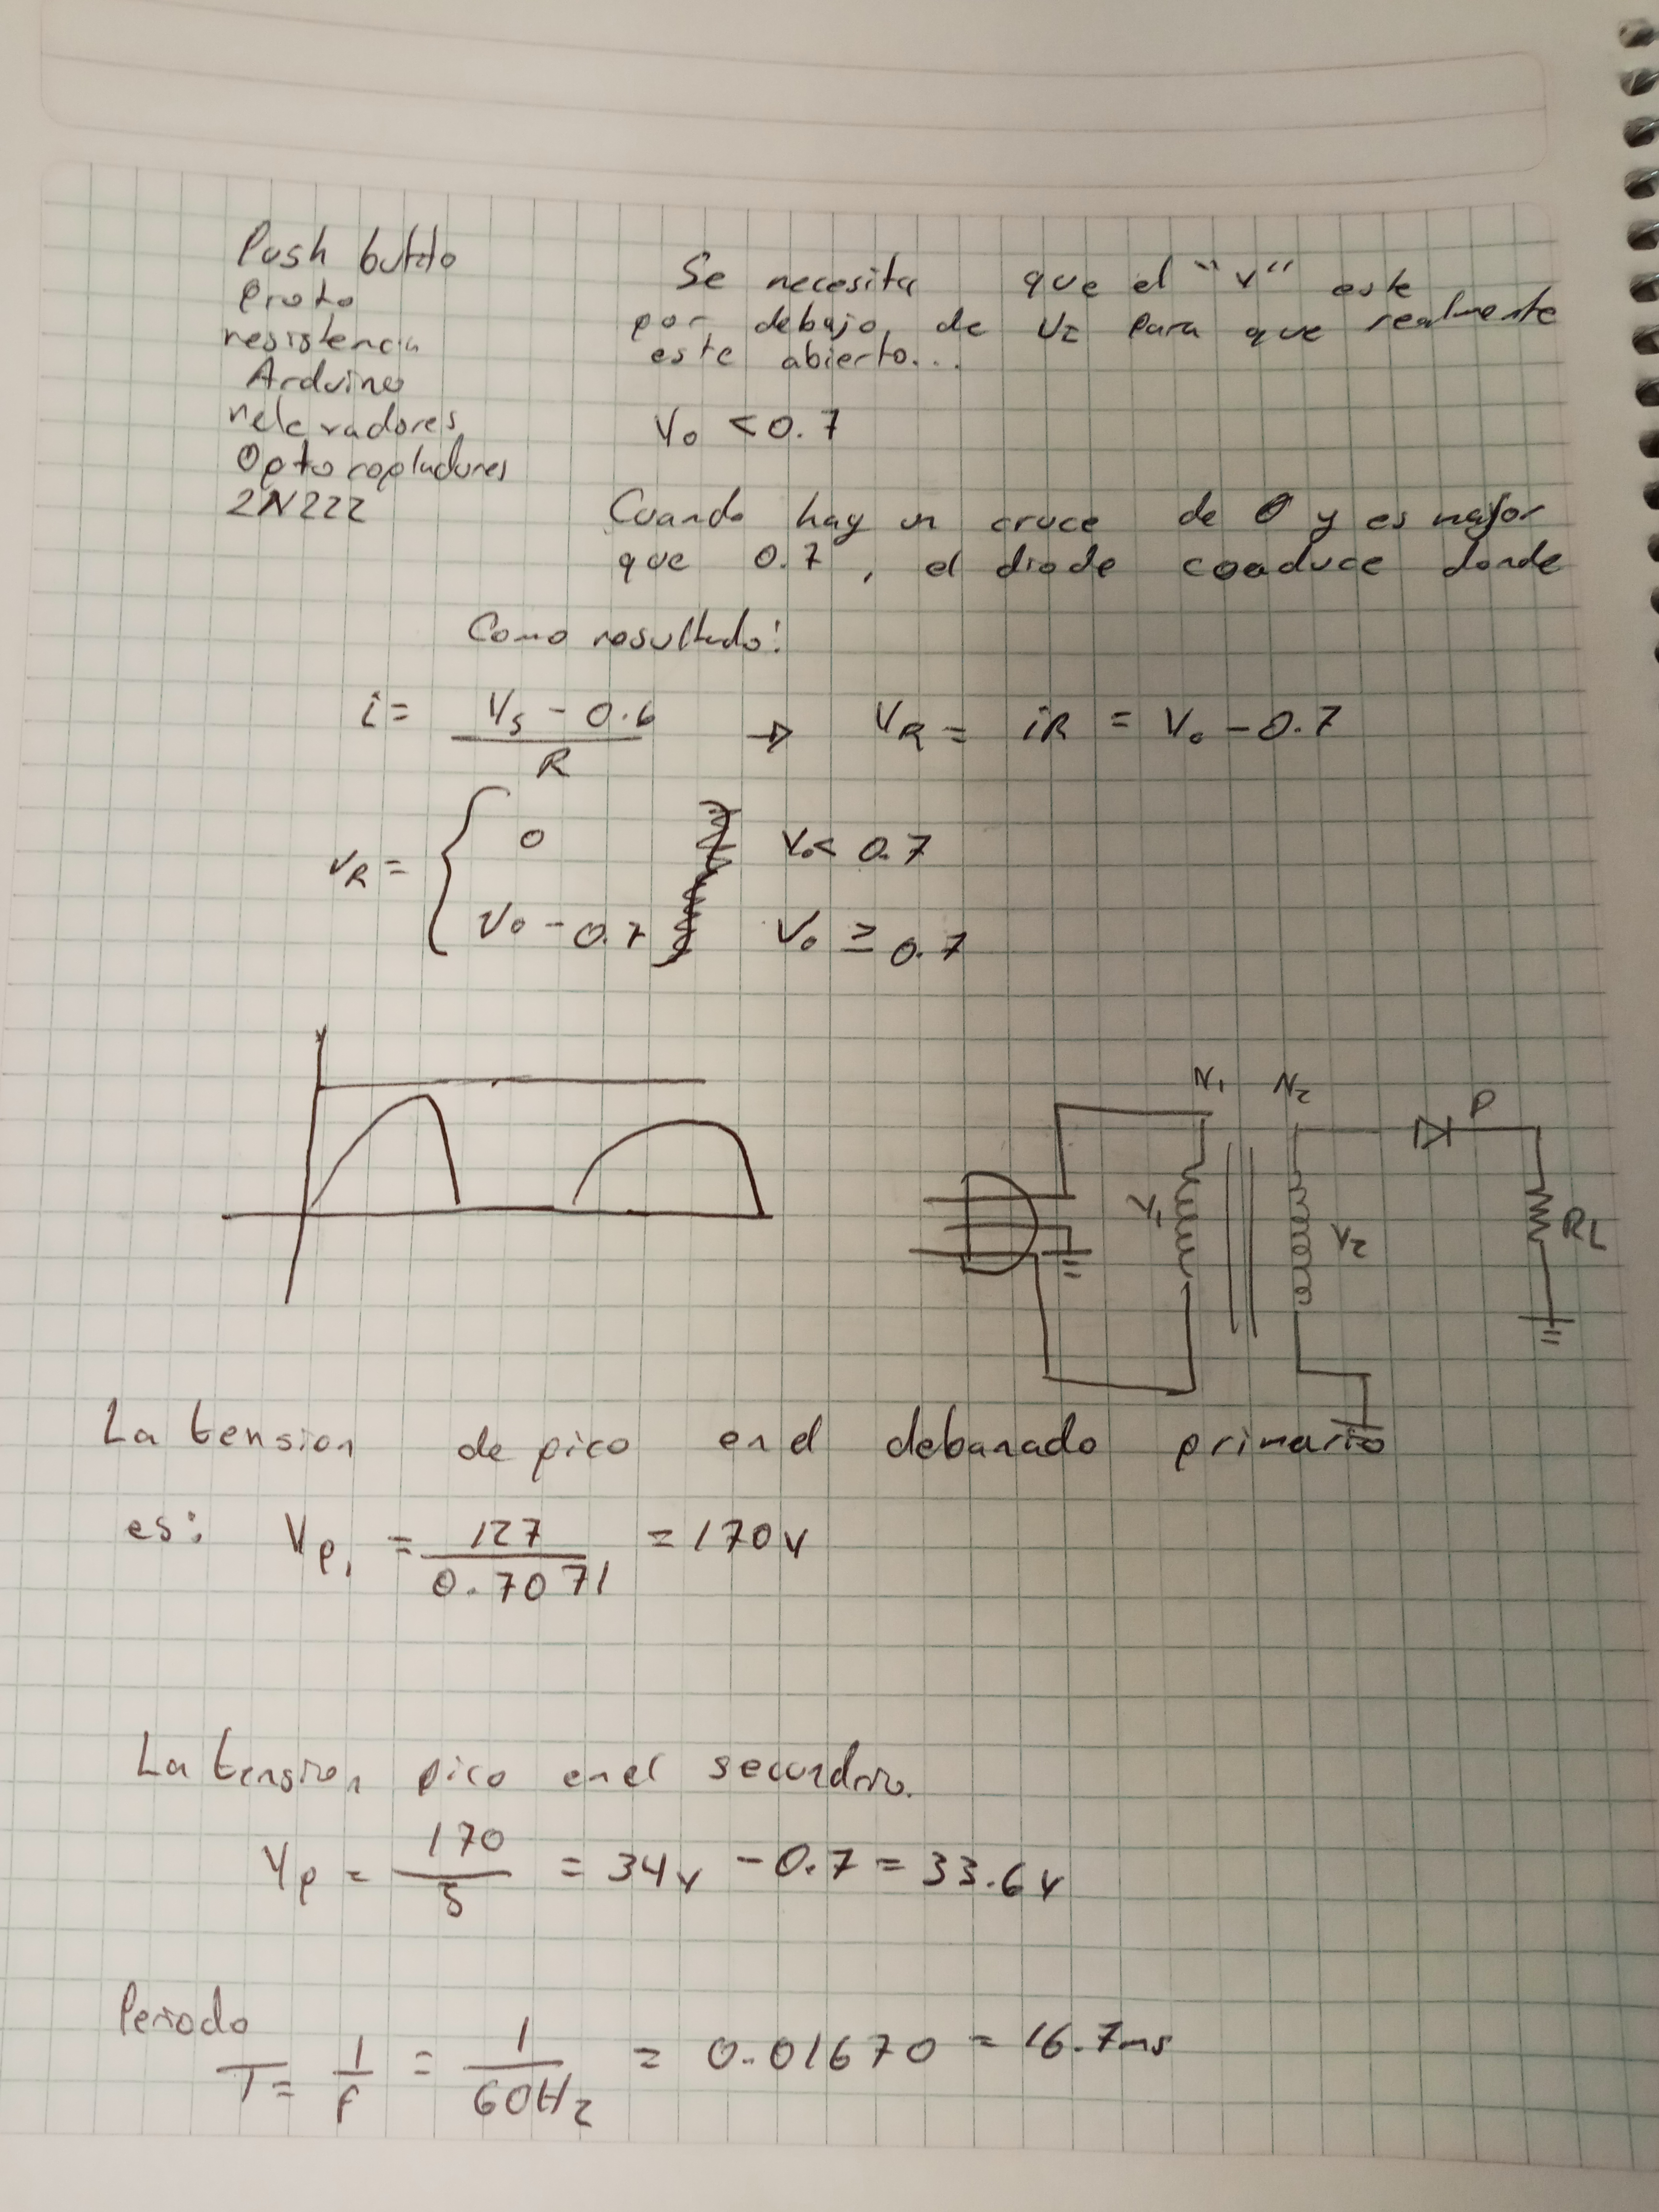 Push butto
Proto
resistencia
Arduino
relevadores
Optocopladores
2N222
Se necesita que el "v" este
por debajo de Vz para que realmente
este abierto...
Vo < 0.7
Cuando hay un cruce de 0 y es mayor
que 0.7, el diode conduce donde
Como resultado:
i = Vs - 0.6 / R → VR = iR = Vo - 0.7
VR = { 0 Vo < 0.7
Vo - 0.7 Vo ≥ 0.7
N1 N2 D
V1 V2 RL
La tension de pico en el debanado primario
es: Vp1 = 127 / 0.7071 = 170v
La tension pico en el secundario.
Vp = 170 / 5 = 34v - 0.7 = 33.6v
Periodo
T = 1/f = 1/60Hz = 0.01670 = 16.7ms